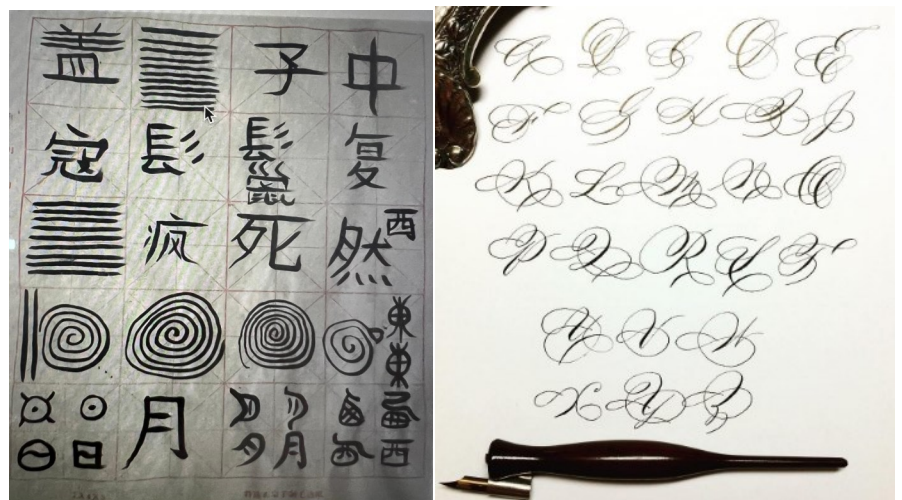 盖 子 中
寇 髟 鬣 复
疯 死 然 西
東
東
月
日 月 西
A B C D E
F G H I J
K L M N O
P Q R S T
U V W
X Y Z